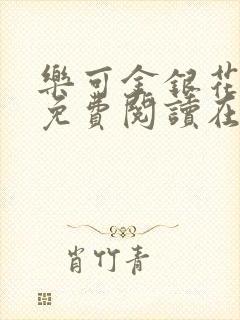 樂可金銀花
免費閱讀在
肖竹青